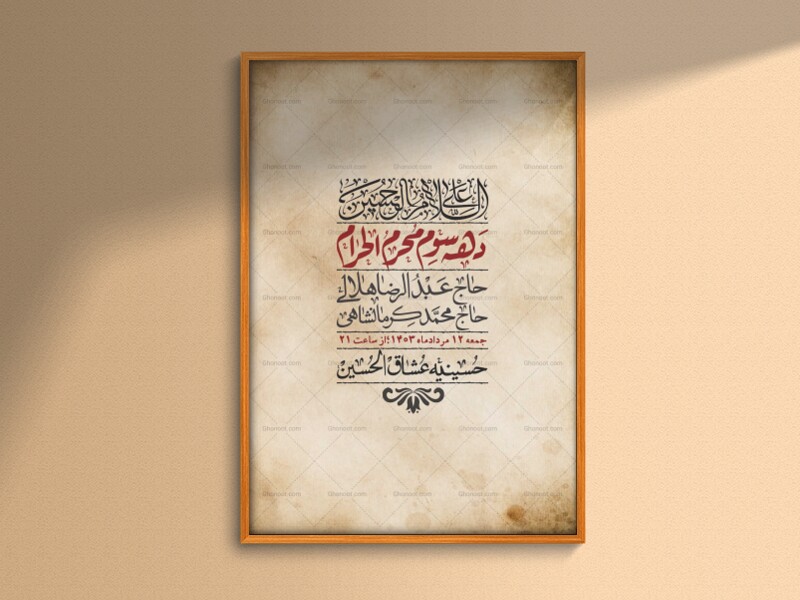 السلام علی الحسین
دهه سوم محرم الحرام
حاج عبدالرضا هلالی
حاج محمد کرمانشاهی
جمعه ۱۲ مردادماه ۱۴۰۳؛ از ساعت ۲۱
حسینیه عشاق الحسین
Ghonoot.com